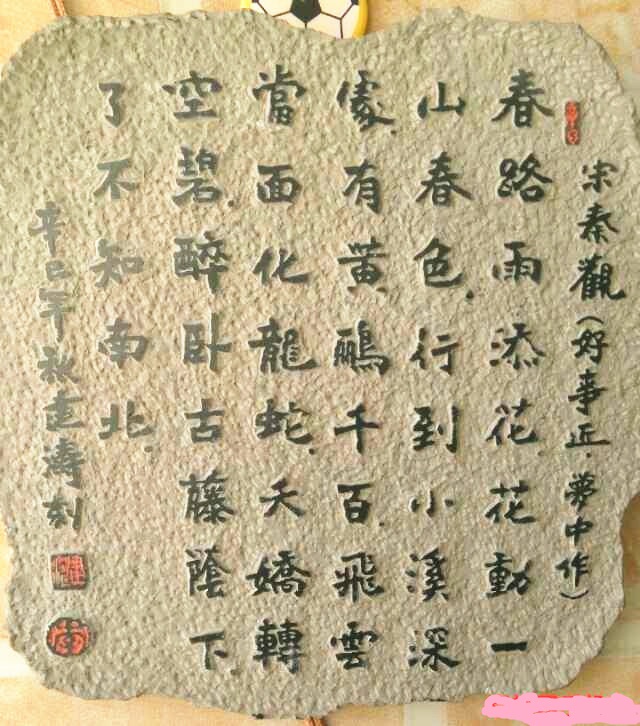 宋秦觀(好事近.夢中作)
春路雨添花花動一
山春色.行到小溪深
處有黃鸝千百.飛雲
當面化龍蛇.夭嬌轉
空碧.醉卧古藤蔭下
了不知南北.
辛巳年秋建濤刻